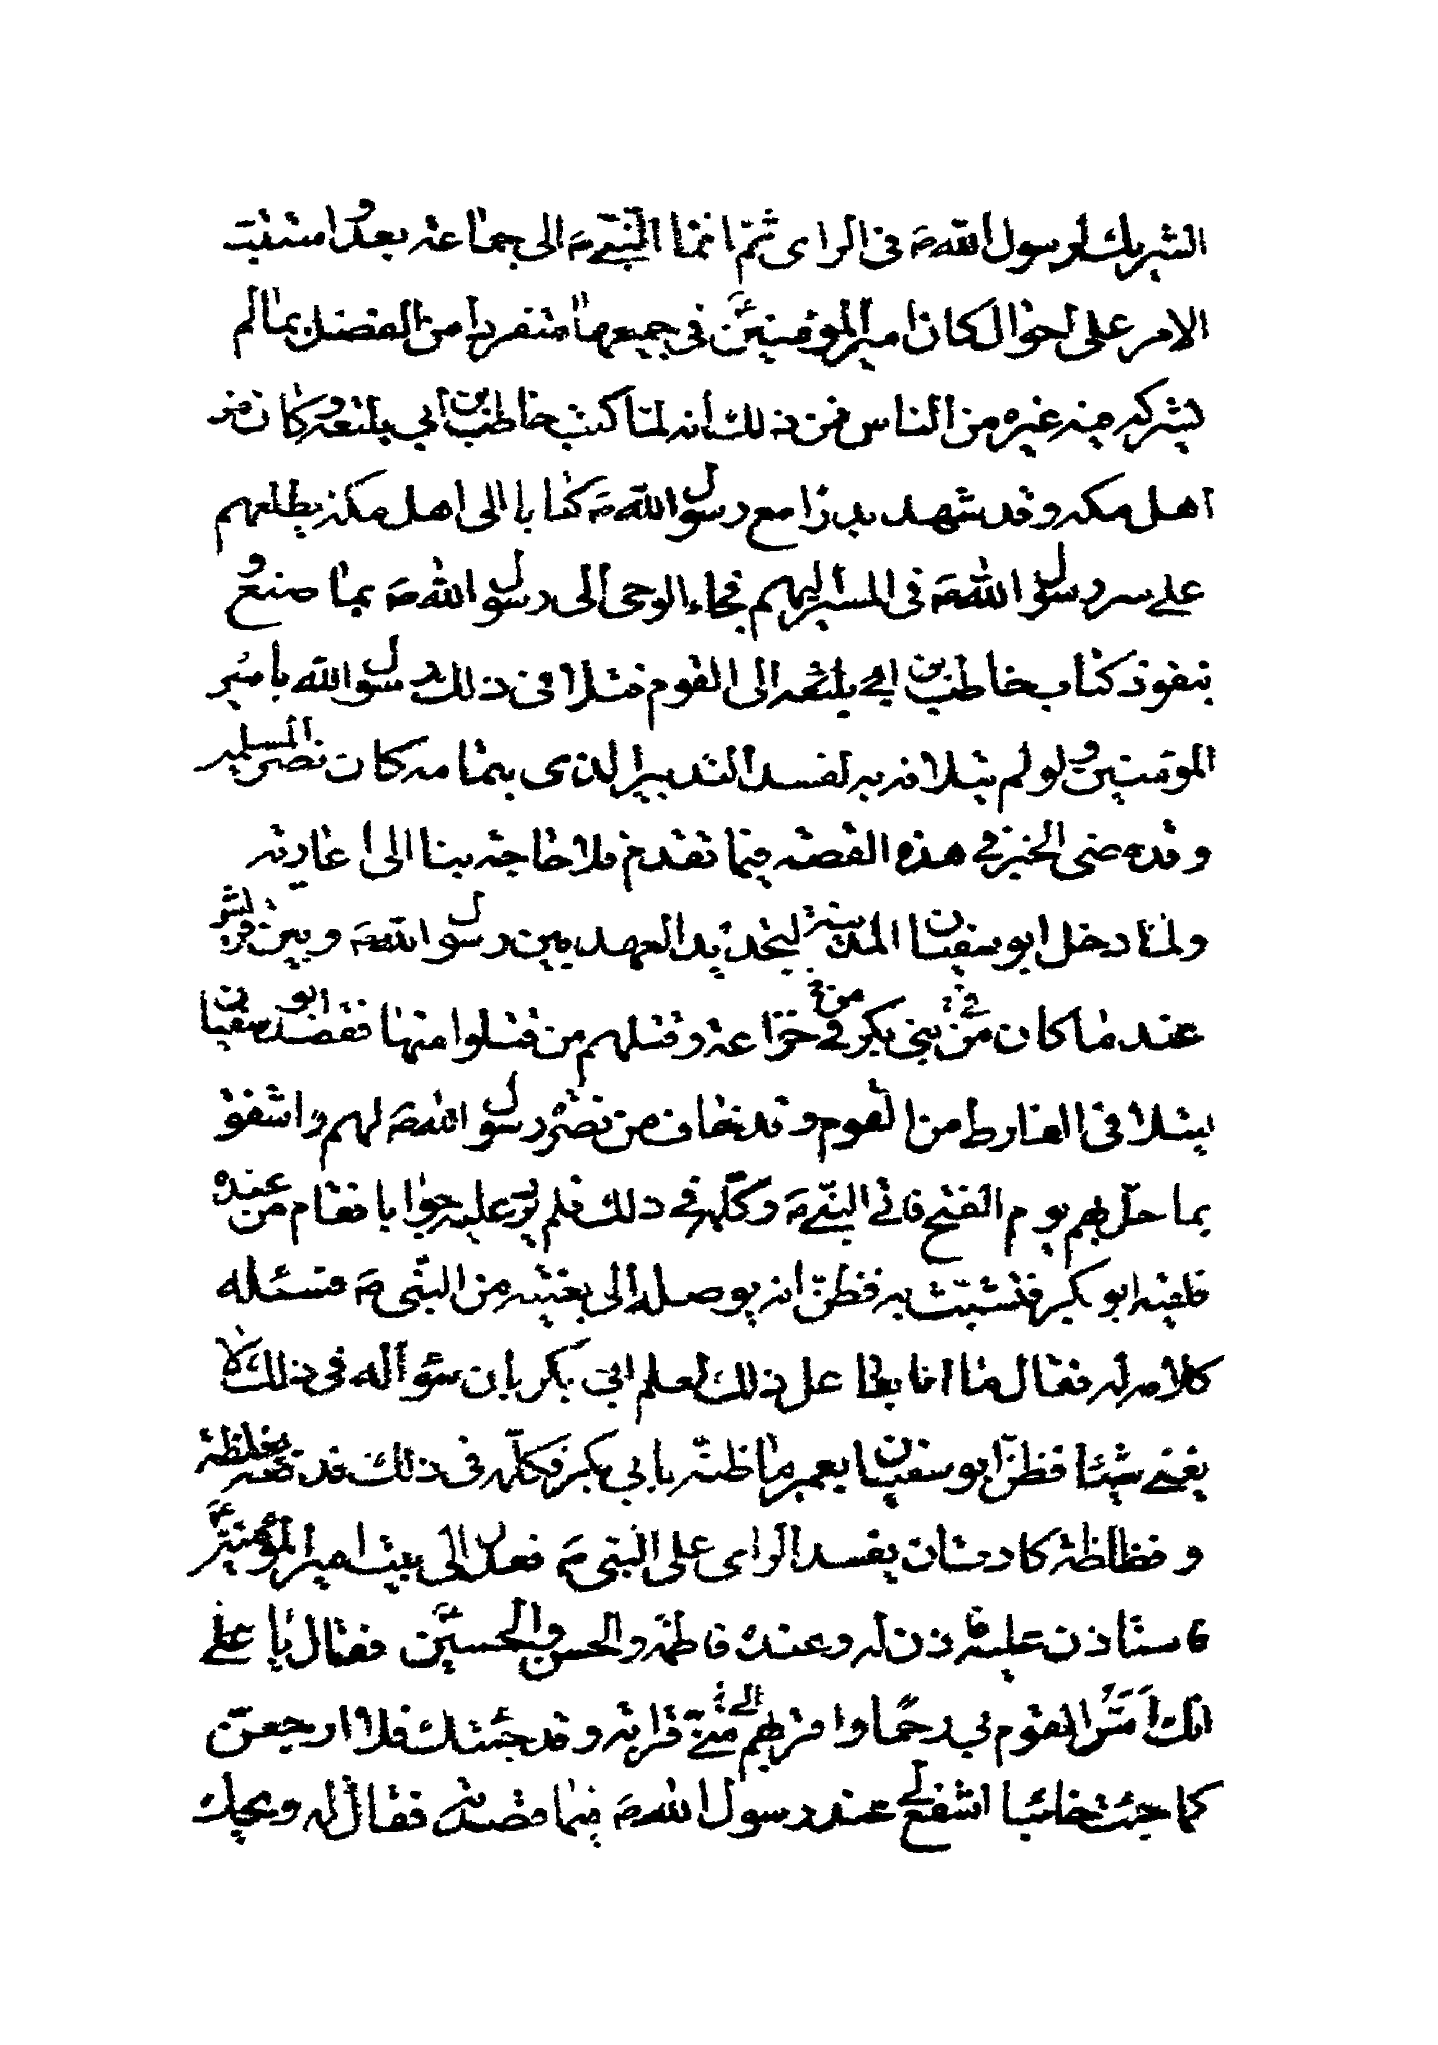 الشريك لرسول الله ص في الراى ثم انما النبي ص الى جماعته بعد و استتبت
الامر على احوال كان امير المؤمنين ع في جميعها منفردا من الفضل بما لم
يشركه فيه غيره من الناس فمن ذلك انه لما كتب حاطب بن ابي بلتعه و كان من
اهل مكه وقد شهد بدرا مع رسول الله ص كتابا الى اهل مكه يطلعهم
على سر رسول الله ص في المسير اليهم فجاء الوحى الى رسول الله ص بما صنع و
بنفوذ كتاب حاطب بن ابي بلتعه الى القوم فتلافى ذلك رسول الله بامير
المؤمنين و لو لم يتلافه به لفسد التدبير الذى بتمامه كان نصر المسلمين
وقد مضى الخبر في هذه القصه فيما تقدم فلا حاجه بنا الى اعادته
ولما دخل ابو سفيان المدينة لتجديد العهد بين رسول الله ص و بين قريش
عند ما كان من بني بكر في خزاعه وقتلهم من قتلوا منها فقصد ابو سفيان
ليتلافى الفارط من القوم وقد خاف من نصرة رسول الله ص لهم واشفق
بما حل بهم يوم الفتح فاتى النبي ص وكلمه في ذلك فلم يرد عليه جوابا فقام من عنده
فلقيه ابو بكر فتشبث به فظن انه يوصله الى بغيته من النبي ص فسئله
كلامه له فقال ما انا بفاعل ذلك لعلم ابي بكر بان سؤآله في ذلك لا
يغني شيئا فظن ابو سفيان بعمر ما ظنه بابي بكر فكلمه في ذلك فدفعه بغلظة
و فظاظة كادت ان يفسد الراى على النبي ص فعدل الى بيت امير المؤمنين ع
فاستاذن عليه فاذن له وعنده فاطمة والحسن والحسين ع فقال يا علي
انك امس القوم بي رحما واقربهم الى مني قرابة وقد جئتك فلا ارجعن
كما جئت خائبا اشفع لي عند رسول الله ص فيما قصدته فقال له ويحك